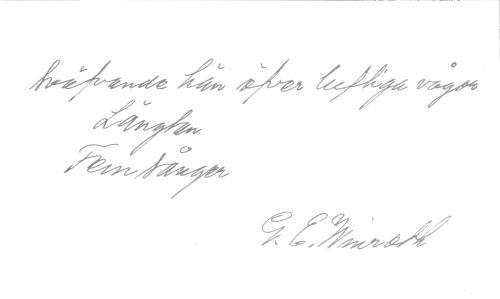 Sväfvande hän öfver luftiga vågor
Längtan
Fem sånger
G. E. Winroth